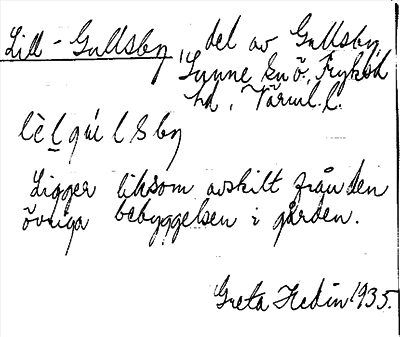 Lill-Gullsby, del av Gullsby,
Sunne sn ö, Fryksd.
hd, Värml. l.
lèl gúlsby
Ligger liksom avskilt från den
övriga bebyggelsen i gården.
Greta Hedin 1935.